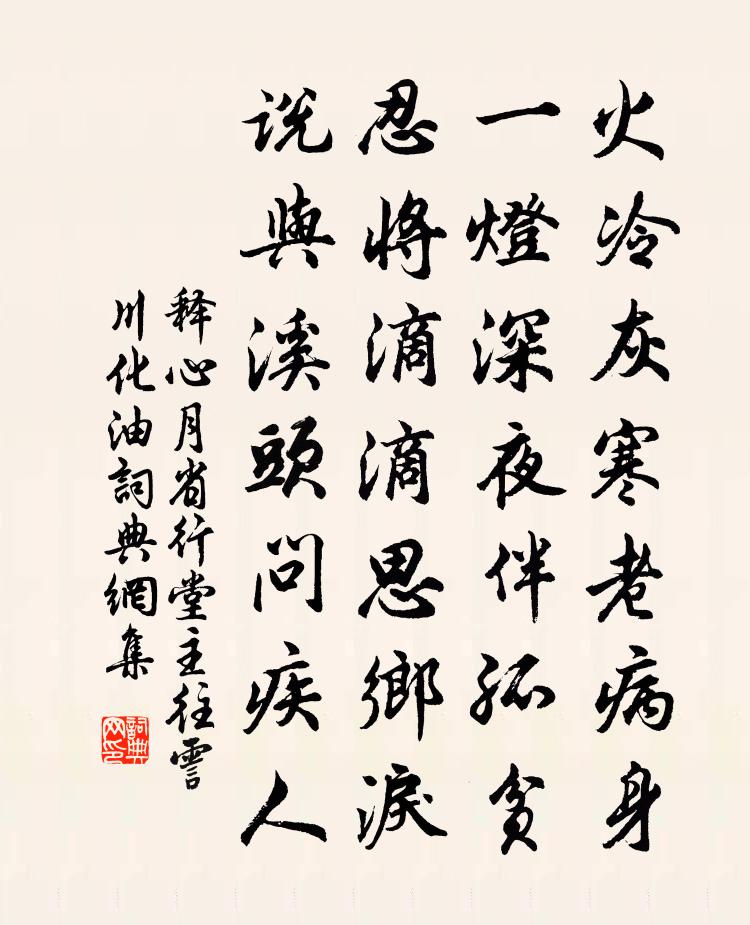 火冷灰寒老病身
一燈深夜伴孤貧
忍將滴滴思鄉淚
説與溪頭問疾人
释心月省行堂主往霅
川化油詞典網集
詞典
网印